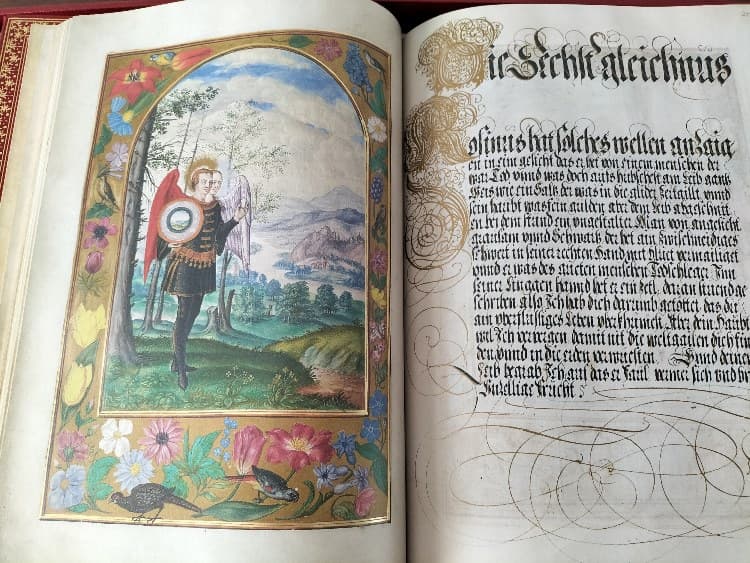 Die Sechst gleichnus
Rosinus hat solches wellen anzaig
en in ein gesicht das er het von einem menschen der
war Tod vnnd was doch aufs hubschest am leib gantz
Weis wie ein Saltz der was in die glider zertailt, vnnd
sein haubt was fein gulden aber dem leib abgeschnitt
en bei dem stund ein vngestalter Man von angesicht
grausam vnnd Schwartz der het ain zwischneidiges
schwert in seiner rechten Hand mit pluet vermailigt
vnnd er was des gueten menschen Todschleger. Inn
seiner linggen hannd het er ein zetl. daran stuend ge
schriben also Ich hab dich darumb getöttet, das du
ain vberflissiges Leben vberkhumest, Aber dein Haubt
wil Ich verpergen damit nit die weltgailen dich fin
den, vnnd in die erden verwuesten. Vnnd deinen
Leib begrab Ich auf das er Faul vermer sich vnd
Vnzellige frucht.